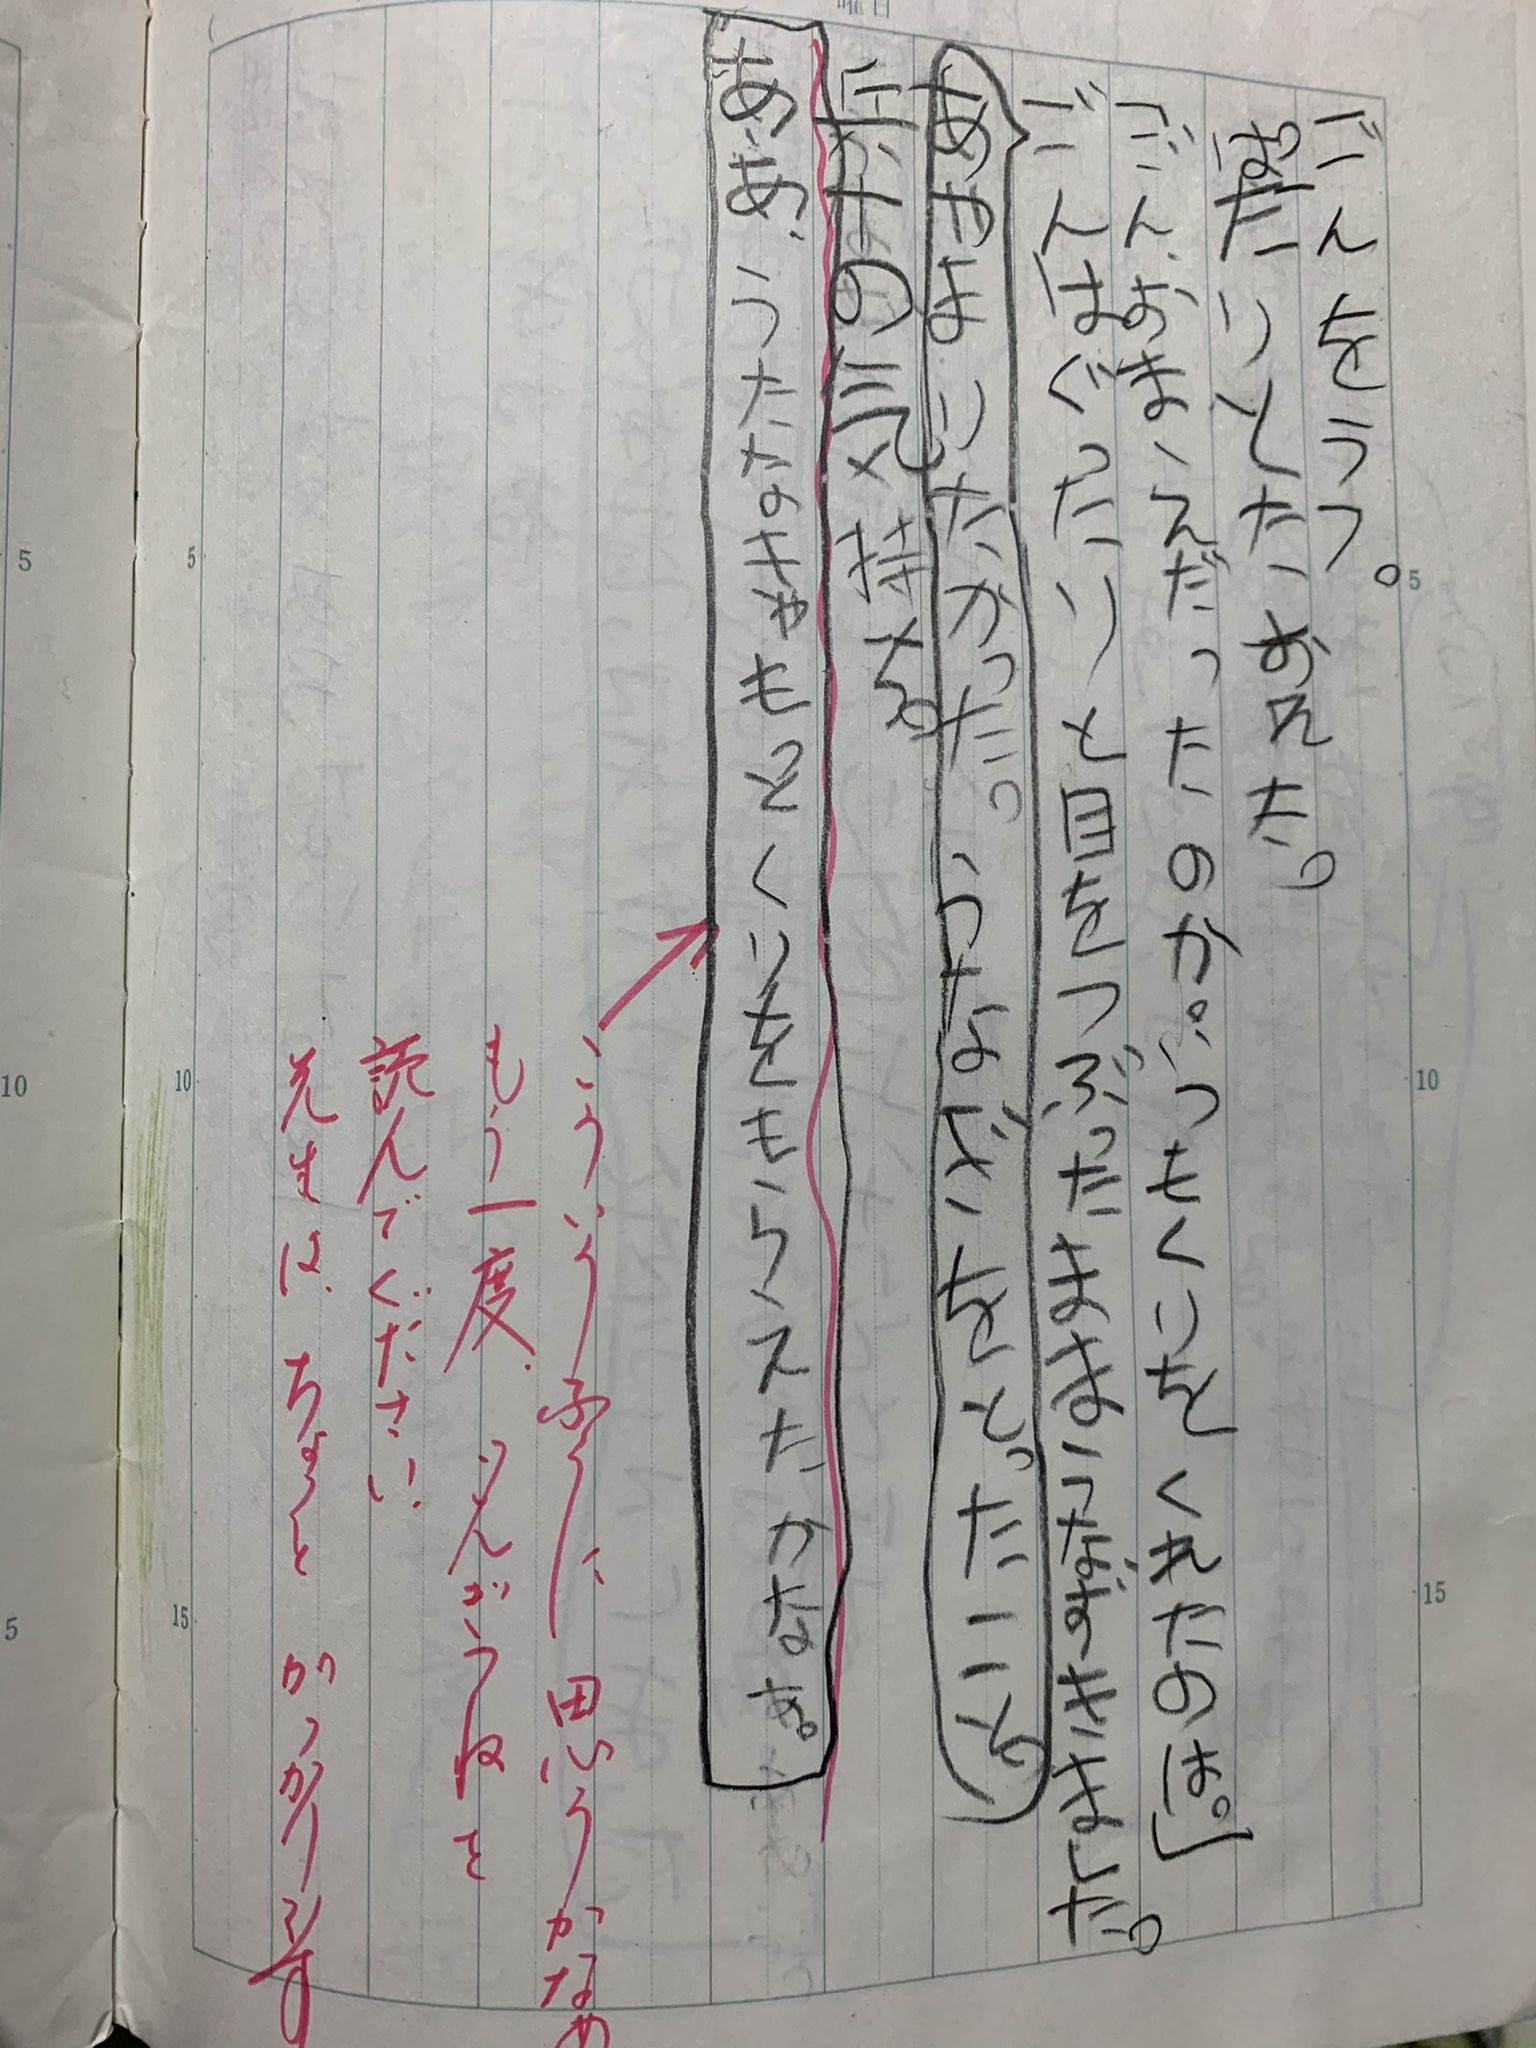 曜日
ごんをうつ。
ばたりとたおれた。
「ごん、おまえだったのか。いつもくりをくれたのは。」
ごんはぐったりと目をつぶったままうなずきました。
あやまりたかった。うなぎをとったこと。
兵十の気持ち。
ああ、うたなきゃもっとくりをもらえたかなあ。
こういうふうに思うかなあ
もう一度、ごんぎつねを
読んでください。
先生は、ちょっとがっかりです
5
10
15
5
10
15
5
10
5